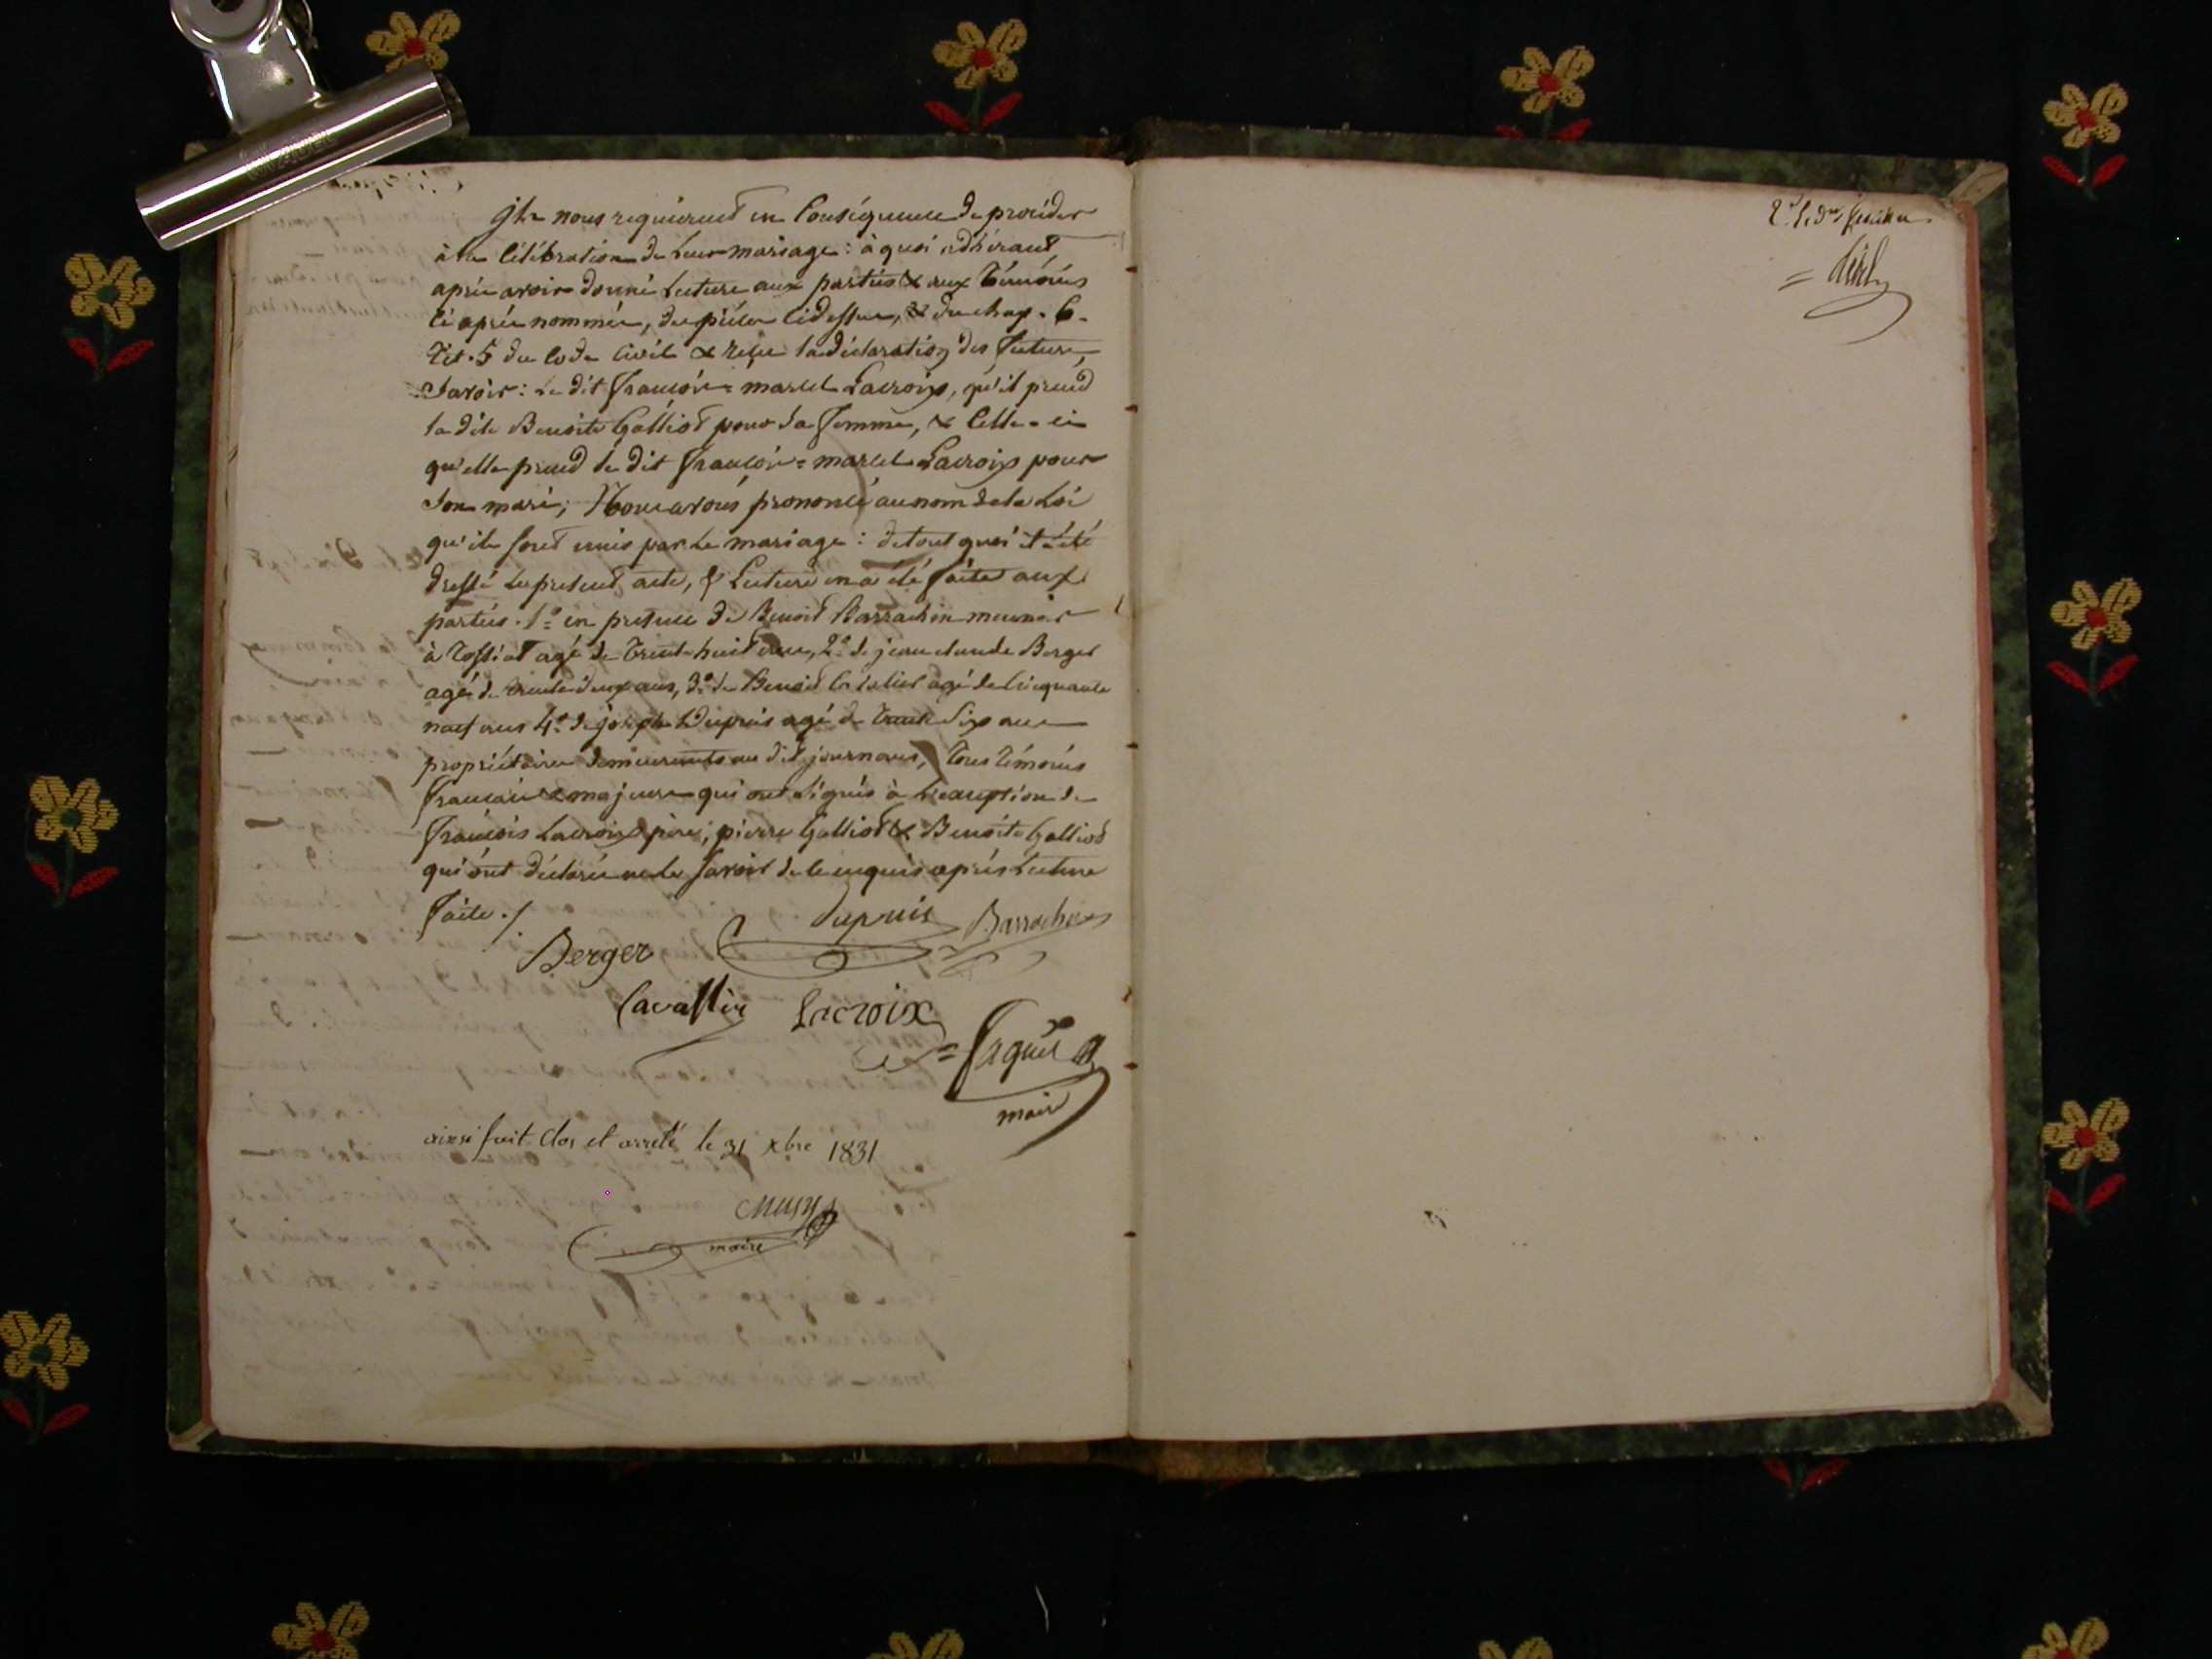 ils nous requièrent en Conséquence de procéder
à la Célébration de Leur mariage : à quoi adhérant,
après avoir donné Lecture aux parties & aux Témoins
Ci après nommés, des pièces Cidessus, & du chap. 6.
Tit. 5 du Code Civil & reçu la déclaration des futurs,
Savoir : Le dit françois = marcel Lacroix, qu'il prend
la dite Benoite Galliod pour sa femme, & Celle-ci
qu'elle prend le dit françois = marcel Lacroix pour
Son mari ; Nous avons prononcé au nom de la Loi
qu'ils sont unis par Le mariage : de tout quoi il a été
dressé Le présent acte, & Lecture en a été faite aux
parties. 1º en présence de Benoit Barrachin meunier
à Tossiat agé de Trente huit ans, 2º de jean claude Berger
agé de trente deux ans, 3º de Benoit Cavalier agé de Cinquante
neuf ans 4º de joseph Dupuis agé de trente Six ans
propriétaires demeurants au dit journans, Tous Témoins
français & majeurs qui ont Signés à L'exception de
françois Lacroix père, pierre Galliod & Benoite Galliod
qui ont déclarés ne le Savoir de ce enquis après Lecture
faite ./.
Dupuis Barrachin
Berger
Cavallier Lacroix
maire
ainsi fait clos et arreté le 31 xbre 1831
Musy
maire